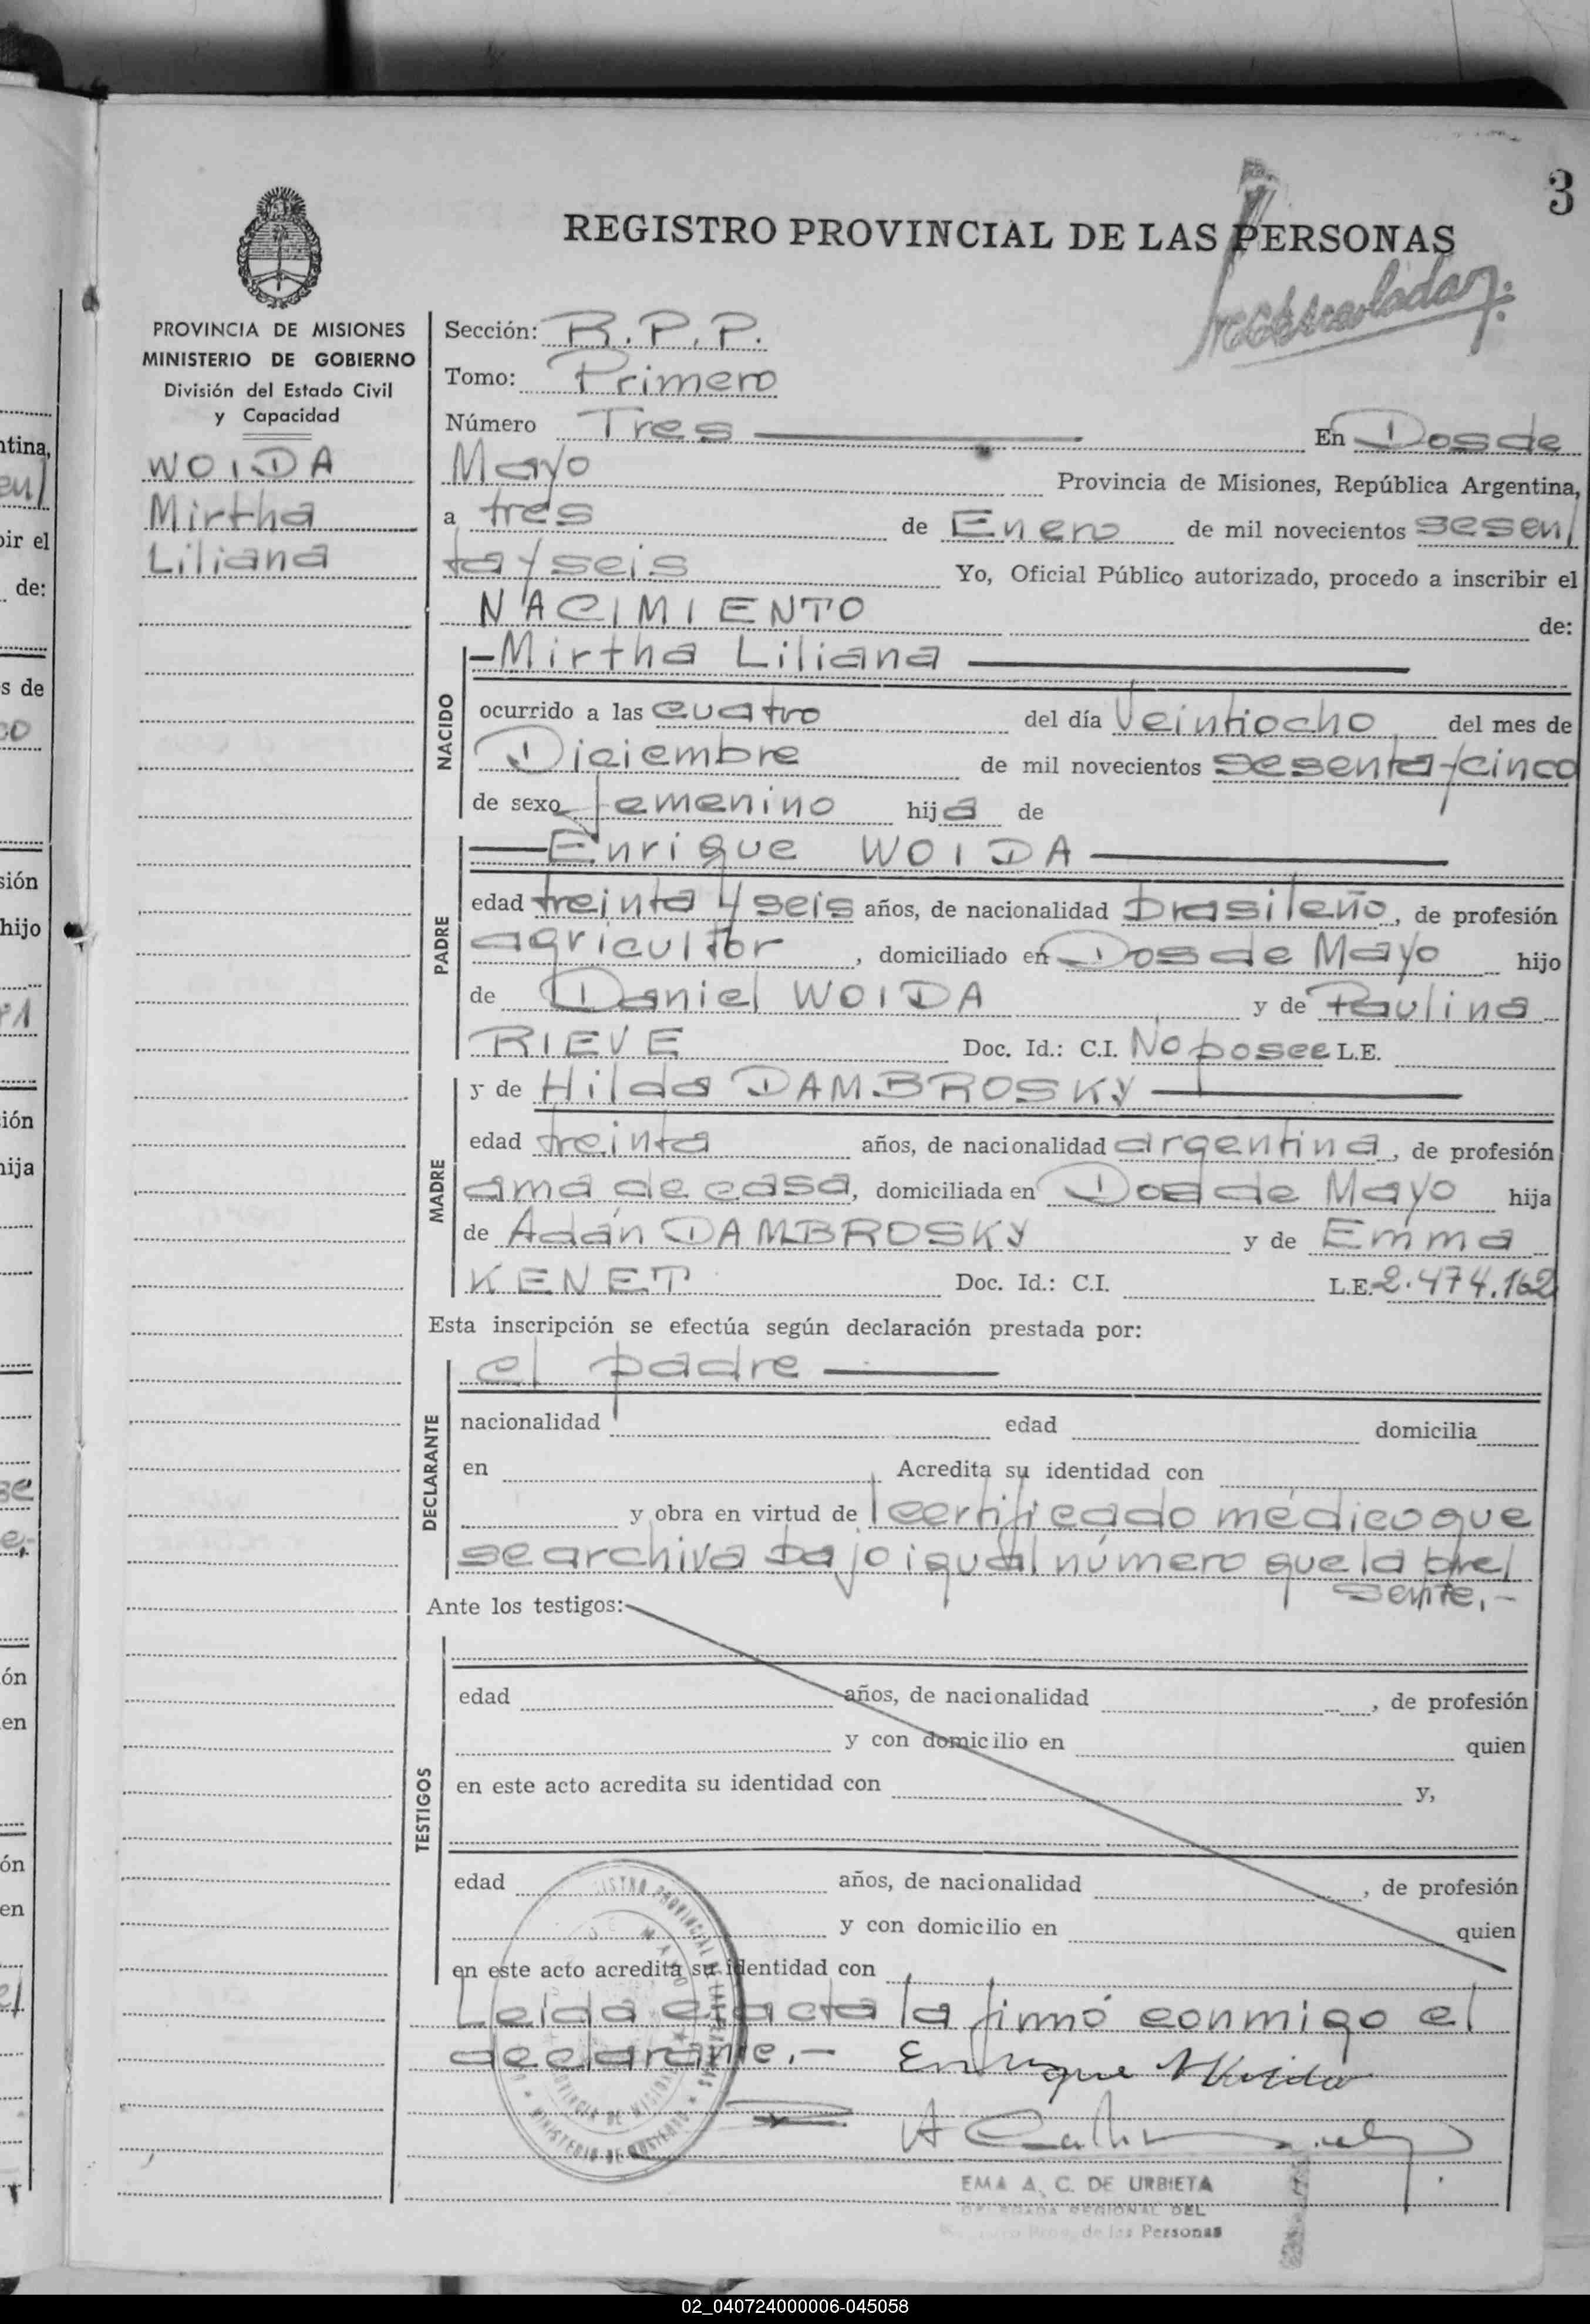 3
REGISTRO PROVINCIAL DE LAS PERSONAS
PROVINCIA DE MISIONES
MINISTERIO DE GOBIERNO
División del Estado Civil
y Capacidad
WOIDA
Mirtha
Liliana
Sección: R.P.P.
Tomo: Primero
Número Tres En Dos de
Mayo Provincia de Misiones, República Argentina,
a tres de Enero de mil novecientos sesen/
ta y seis Yo, Oficial Público autorizado, procedo a inscribir el
NACIMIENTO de:
NACIDO
-Mirtha Liliana
ocurrido a las cuatro del día Veintiocho del mes de
Diciembre de mil novecientos sesenta y cinco
de sexo femenino hija de
PADRE
Enrique WOIDA
edad treinta y seis años, de nacionalidad brasileño, de profesión
agricultor, domiciliado en Dos de Mayo hijo
de Daniel WOIDA y de Paulina
RIEVE Doc. Id.: C.I. No posee L.E.
MADRE
y de Hilda DAMBROSKY
edad treinta años, de nacionalidad argentina, de profesión
ama de casa, domiciliada en Dos de Mayo hija
de Adán DAMBROSKY y de Emma
KENET Doc. Id.: C.I. L.E. 2.474.162
Esta inscripción se efectúa según declaración prestada por:
DECLARANTE
el padre
nacionalidad edad domicilia
en Acredita su identidad con
y obra en virtud de l certificado médico que
se archiva bajo igual número que la pre/
sente.-
Ante los testigos:
TESTIGOS
edad años, de nacionalidad , de profesión
y con domicilio en quien
en este acto acredita su identidad con y,
edad años, de nacionalidad , de profesión
y con domicilio en quien
en este acto acredita su identidad con
Leida el acta la firmó conmigo el
declarante.- Enrique Woida
EMA A. C. DE URBIETA
DELEGADA REGIONAL DEL
de las Personas
02_040724000006-045058